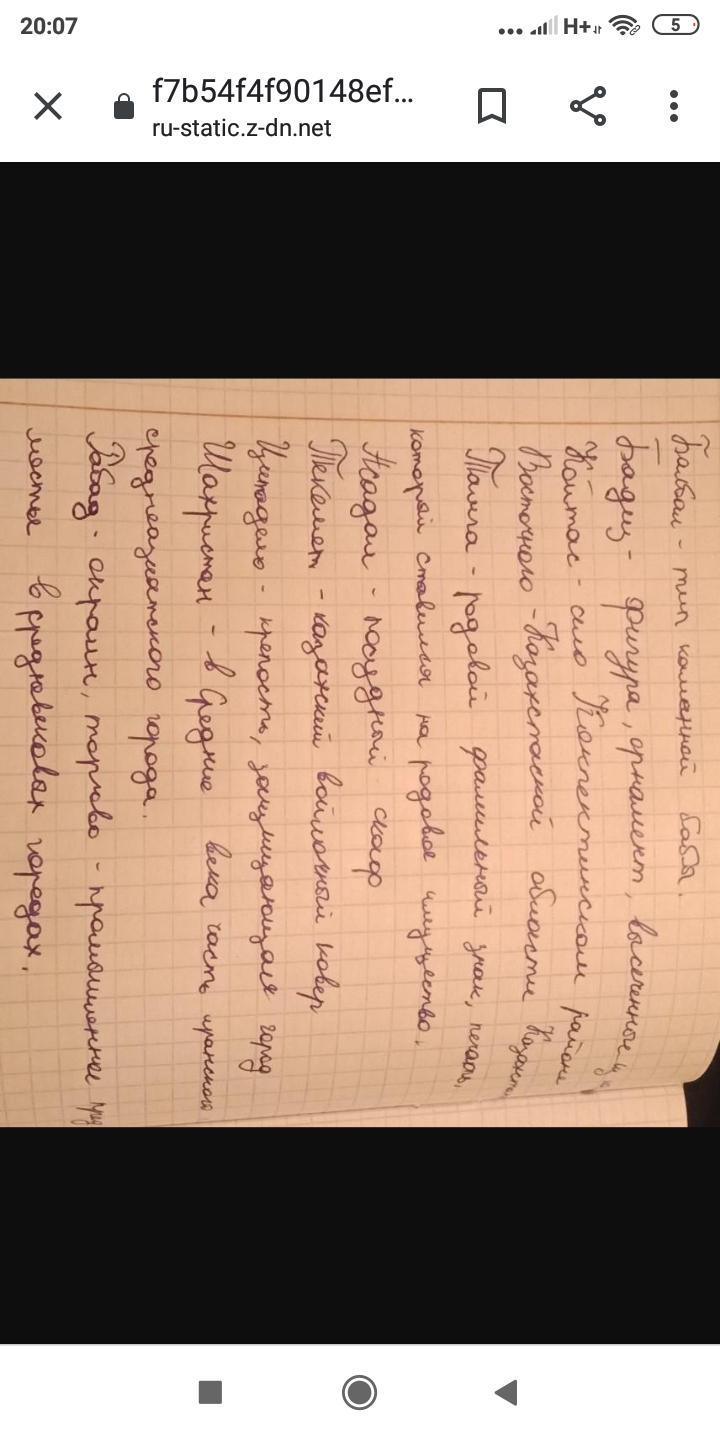 20:07
H+
5
f7b54f4f90148ef...
ru-static.z-dn.net
Балбал - тип каменной бабы.
Бадиз - фигура, орнамент, высеченные
Койтас - село Кокпектинском районе
Восточного - Казахстаской области Казахст
Тамга - родовой фамильный знак, печать,
которой ставился на родовое имущество.
Асадал - посудный скаф
Текемет - казахский войлочный ковер
Цитадель - крепость, защищающая город
Шахристан - в Средние века часть иранского
среднеазиатского города.
Рабад - окраин, торгово - промышленные пред
местья в средневековых городах.